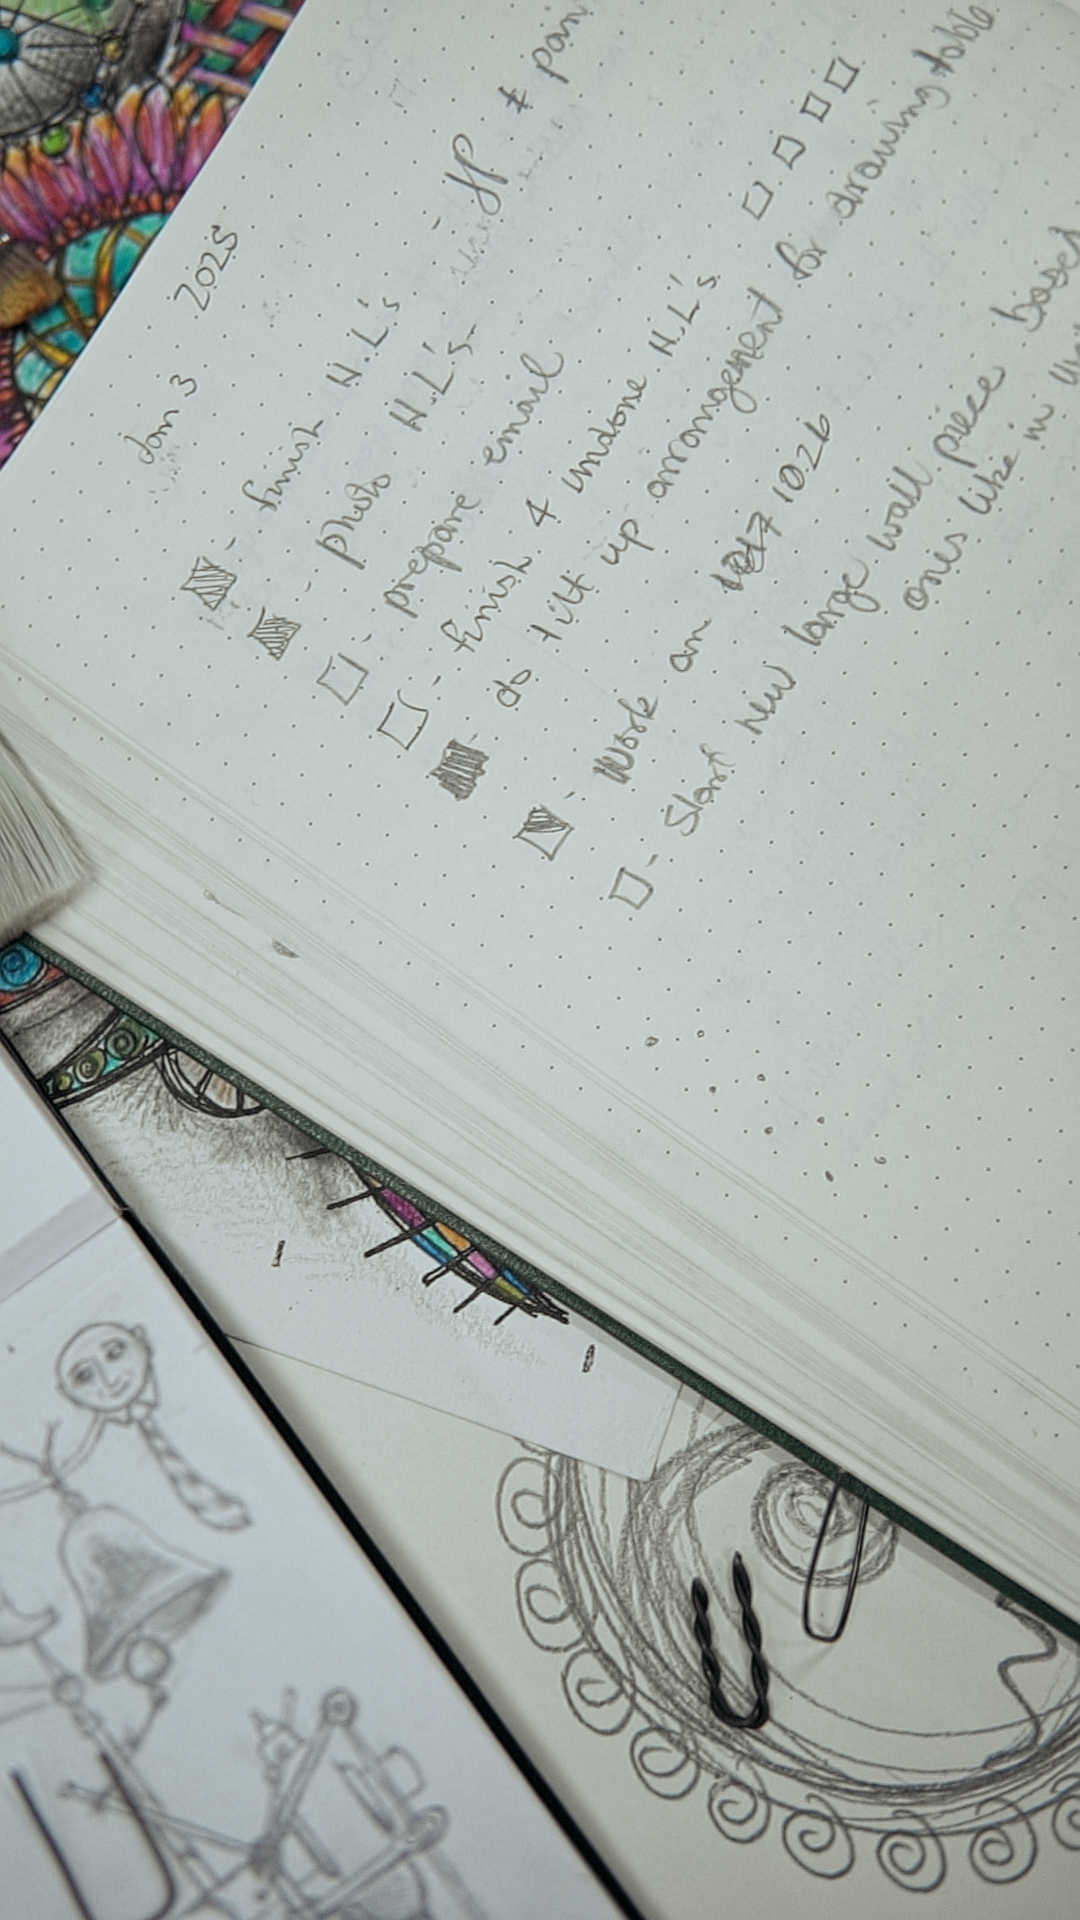 Jan 3 2025
- finish H.L's
- photo H.L's - JP # pain
- prepare email
- finish 4 undone H.L's
- do tilt up arrangement for drawing table
- Work on 1026
- Start new large wall piece based
ones like in